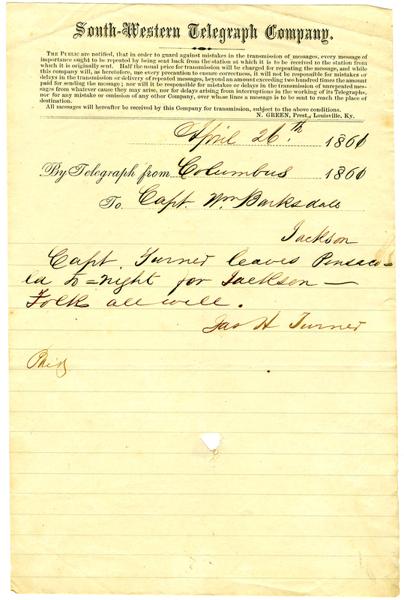 South-Western Telegraph Company.
THE PUBLIC are notified, that in order to guard against mistakes in the transmission of messages, every message of
importance ought to be repeated by being sent back from the station at which it is to be received to the station from
which it is originally sent. Half the usual price for transmission will be charged for repeating the message, and while
this company will, as heretofore, use every precaution to ensure correctness, it will not be responsible for mistakes or
delays in the transmission or delivery of repeated messages, beyond an amount exceeding two hundred times the amount
paid for sending the message; nor will it be responsible for mistakes or delays in the transmission of unrepeated mes-
sages from whatever cause they may arise, nor for delays arising from interruptions in the working of its Telegraphs,
nor for any mistake or omission of any other Company, over whose lines a message is to be sent to reach the place of
destination.
All messages will hereafter be received by this Company for transmission, subject to the above conditions.
N. GREEN, Prest., Louisville, Ky.
April 26th 1860
By Telegraph from Columbus 1860
To Capt. Wm Barksdale
Jackson
Capt Turner leaves Pensaco-
la to=night for Jackson —
Folk all well.
Jas H Turner
Paid